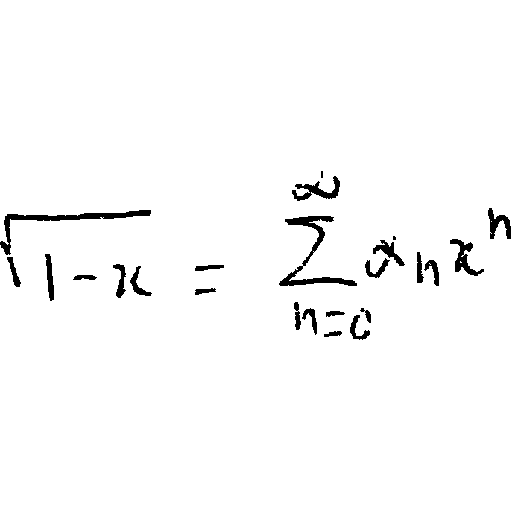 \sqrt{1-x} = \sum_{n=0}^{\infty} \alpha_n x^n